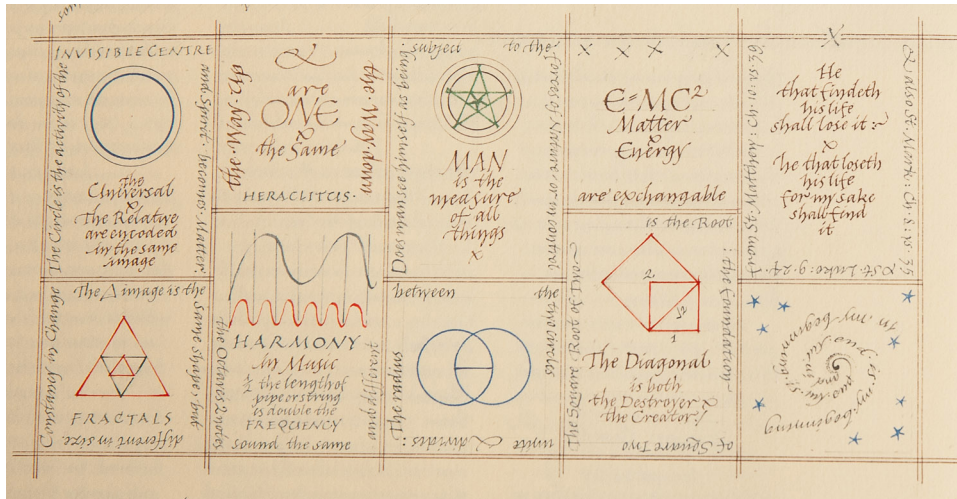 The Circle is the activity of the
INVISIBLE CENTRE
and Spirit · becomes · Matter.
the
Universal
&
The Relative
are encoded
in the same
image
Constancy in Change
The △ image is the
same shape, but
different in size
FRACTALS
the · Way · Up
&
the · Way · down
are
ONE
&
the Same
HERACLITUS ·
HARMONY
in Music
½ the length of
pipe or string
is double the
FREQUENCY
the Octaves 2 notes
sound the same
and different
Does man see himself as being
subject to the
forces of Nature or in control
MAN
is the
measure
of all
things
x
: The radius
between the
the two circles
unite & divides
x x x x
E=MC²
Matter
&
Energy
are exchangable
The Square · Root of Two
is the Root
: the foundation
of Square Two
2.
√2
1
The Diagonal
is both
the Destroyer &
the Creator!
x
from St. Matthew: Ch: 10. vs. 39.
& also St. Mark: Ch: 8: v: 35
& St. Luke: 9. 24.
He
that findeth
his life
shall lose it:
&
he that loseth
his life
for my sake
shall find
it
In · my · beginning
is · my · beginning